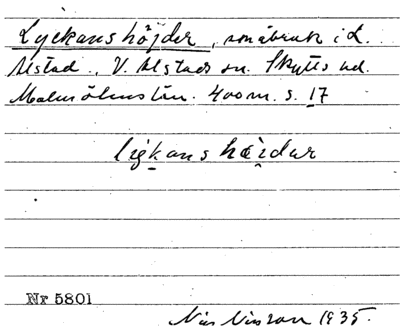 Lyckans höjder, småbruk i L.
Alstad, V. Alstads sn. Skytts hd.
Malmöhus län. 400 m. s. 17
lykans hæidar
Nr 5801
Nils Nilsson 1935.